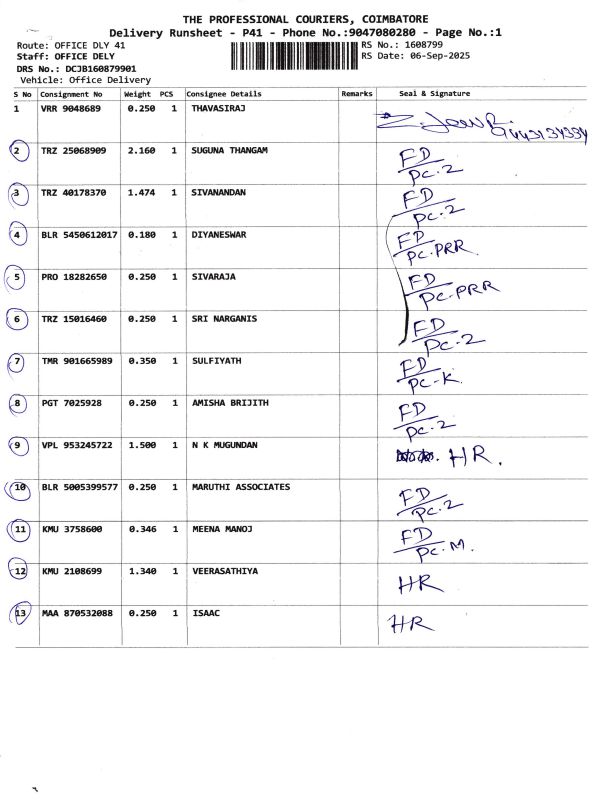 THE PROFESSIONAL COURIERS, COIMBATORE
Delivery Runsheet - P41 - Phone No.:9047080280 - Page No.:1
Route: OFFICE DLY 41 RS No.: 1608799
Staff: OFFICE DELY RS Date: 06-Sep-2025
DRS No.: DCJB160879901
Vehicle: Office Delivery
S No Consignment No Weight PCS Consignee Details Remarks Seal & Signature
1 VRR 9048689 0.250 1 THAVASIRAJ
2 TRZ 25068909 2.160 1 SUGUNA THANGAM FD
PC-2
3 TRZ 40178370 1.474 1 SIVANANDAN FD
PC-2
4 BLR 5450612017 0.180 1 DIYANESWAR FD
PC-PRR
5 PRO 18282650 0.250 1 SIVARAJA FD
PC-PRR
6 TRZ 15016460 0.250 1 SRI NARGANIS FD
PC-2
7 TMR 901665989 0.350 1 SULFIYATH FD
PC-K.
8 PGT 7025928 0.250 1 AMISHA BRIJITH FD
PC-2
9 VPL 953245722 1.500 1 N K MUGUNDAN HR.
10 BLR 5005399577 0.250 1 MARUTHI ASSOCIATES FD
PC-2
11 KMU 3758600 0.346 1 MEENA MANOJ FD
PC-M.
12 KMU 2108699 1.340 1 VEERASATHIYA HR
13 MAA 870532088 0.250 1 ISAAC HR